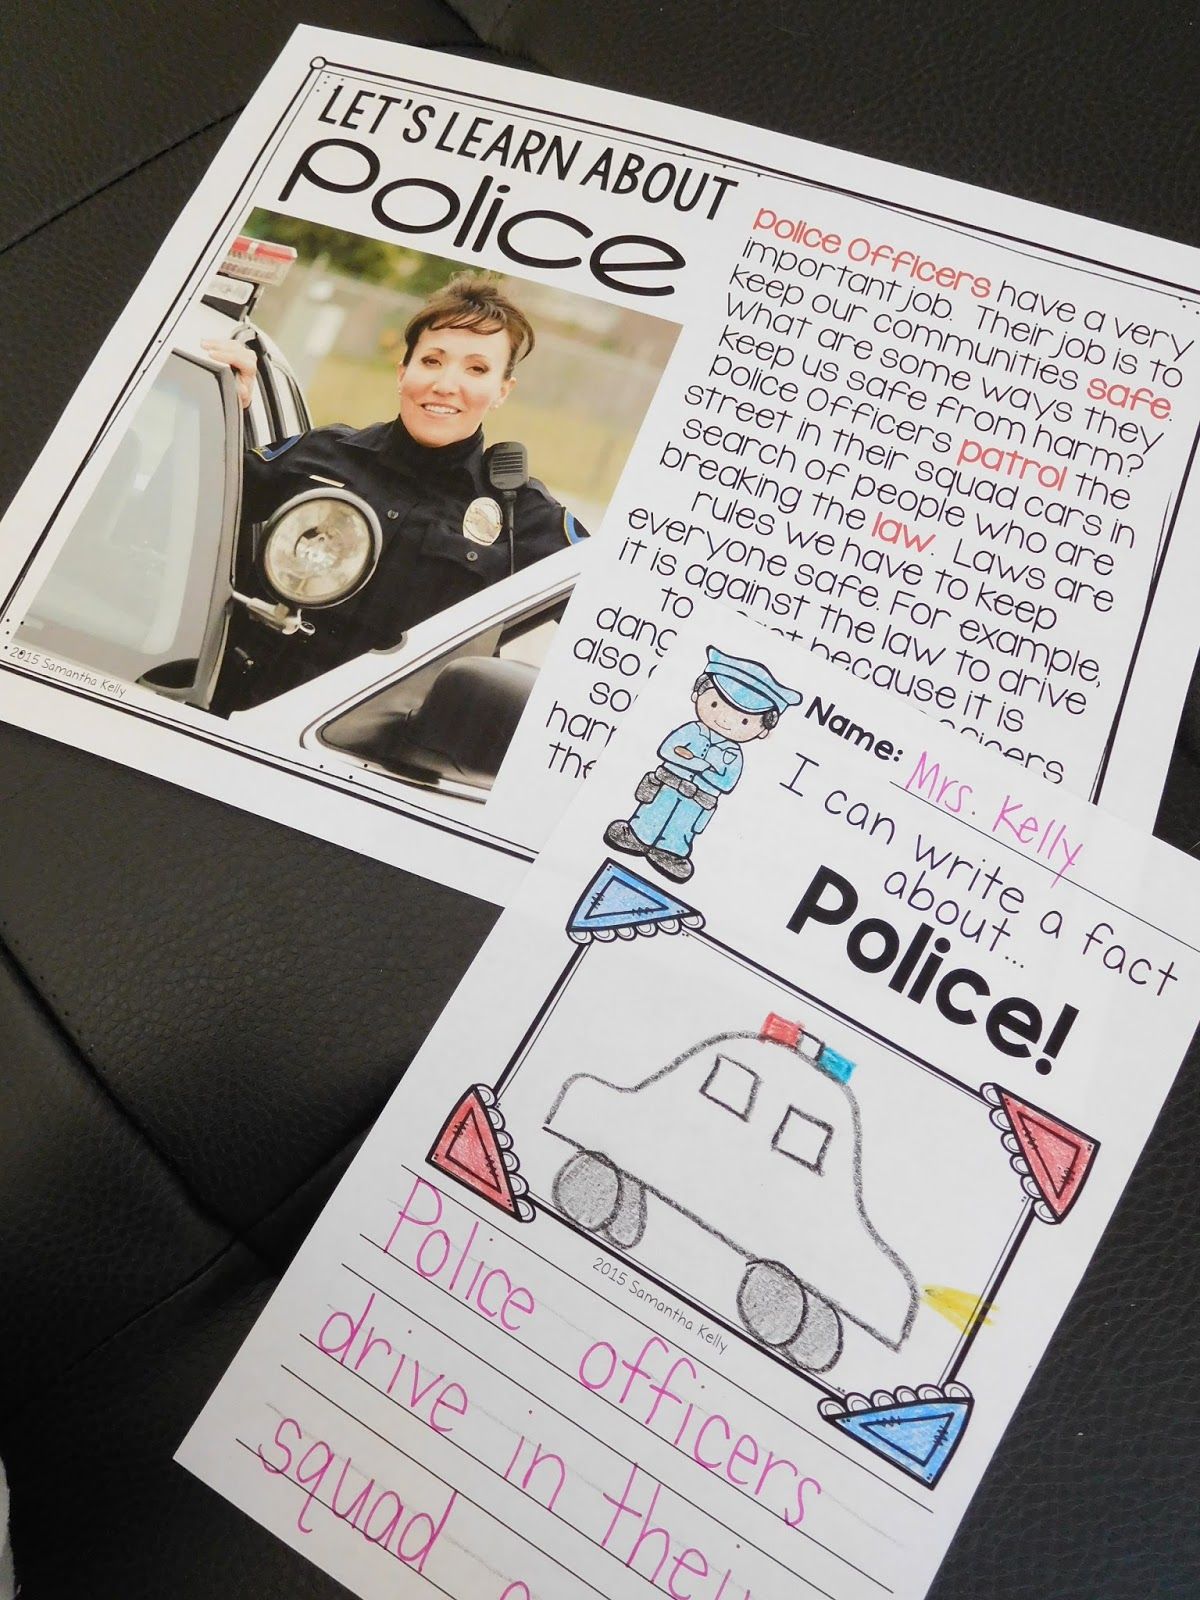 LET'S LEARN ABOUT
Police
Police Officers have a very
important job. Their job is to
keep our communities safe.
What are some ways they
keep us safe from harm?
Police Officers patrol the
street in their squad cars in
search of people who are
breaking the law. Laws are
rules we have to keep
everyone safe. For example,
it is against the law to drive
to because it is
also
the
2015 Samantha Kelly
Name: Mrs. Kelly
I can write a fact
about...
Police!
2015 Samantha Kelly
Police officers
drive in their
squad